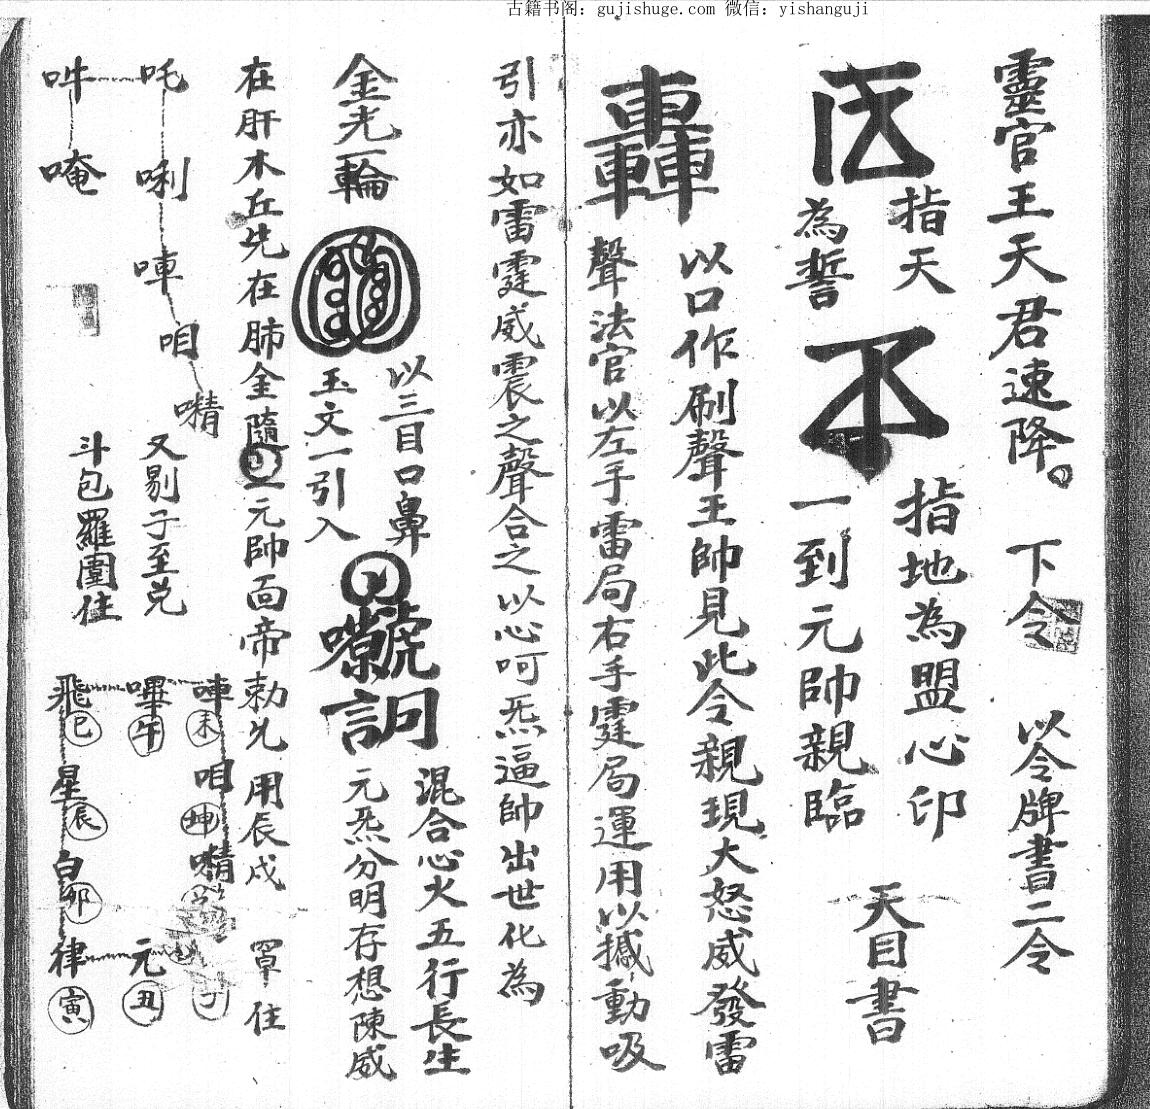 古籍书阁：gujishuge.com 微信：yishanguji
靈官王天君速降。 下令 以令牌書二令
指天
為誓
指地為盟心印
一到元帥親臨
天目書
轟
以口作刷聲王帥見此令親現大怒威發雷
聲法官以左手雷局右手霆局運用以撼動吸
引亦如雷霆威震之聲合之以心呵炁逼帥出世化為
金光一輪
以三目口鼻
玉文一引入
混合心火五行長生
元炁分明存想陳威
在肝木丘先在肺金隨
元帥面帝勅先用辰戌 罩住
吒唎唓咱𠼤
吽唵
又剔子至兑
斗包羅圍住
唓未咱坤
嗶午 元丑
飛巳星辰白卯律寅